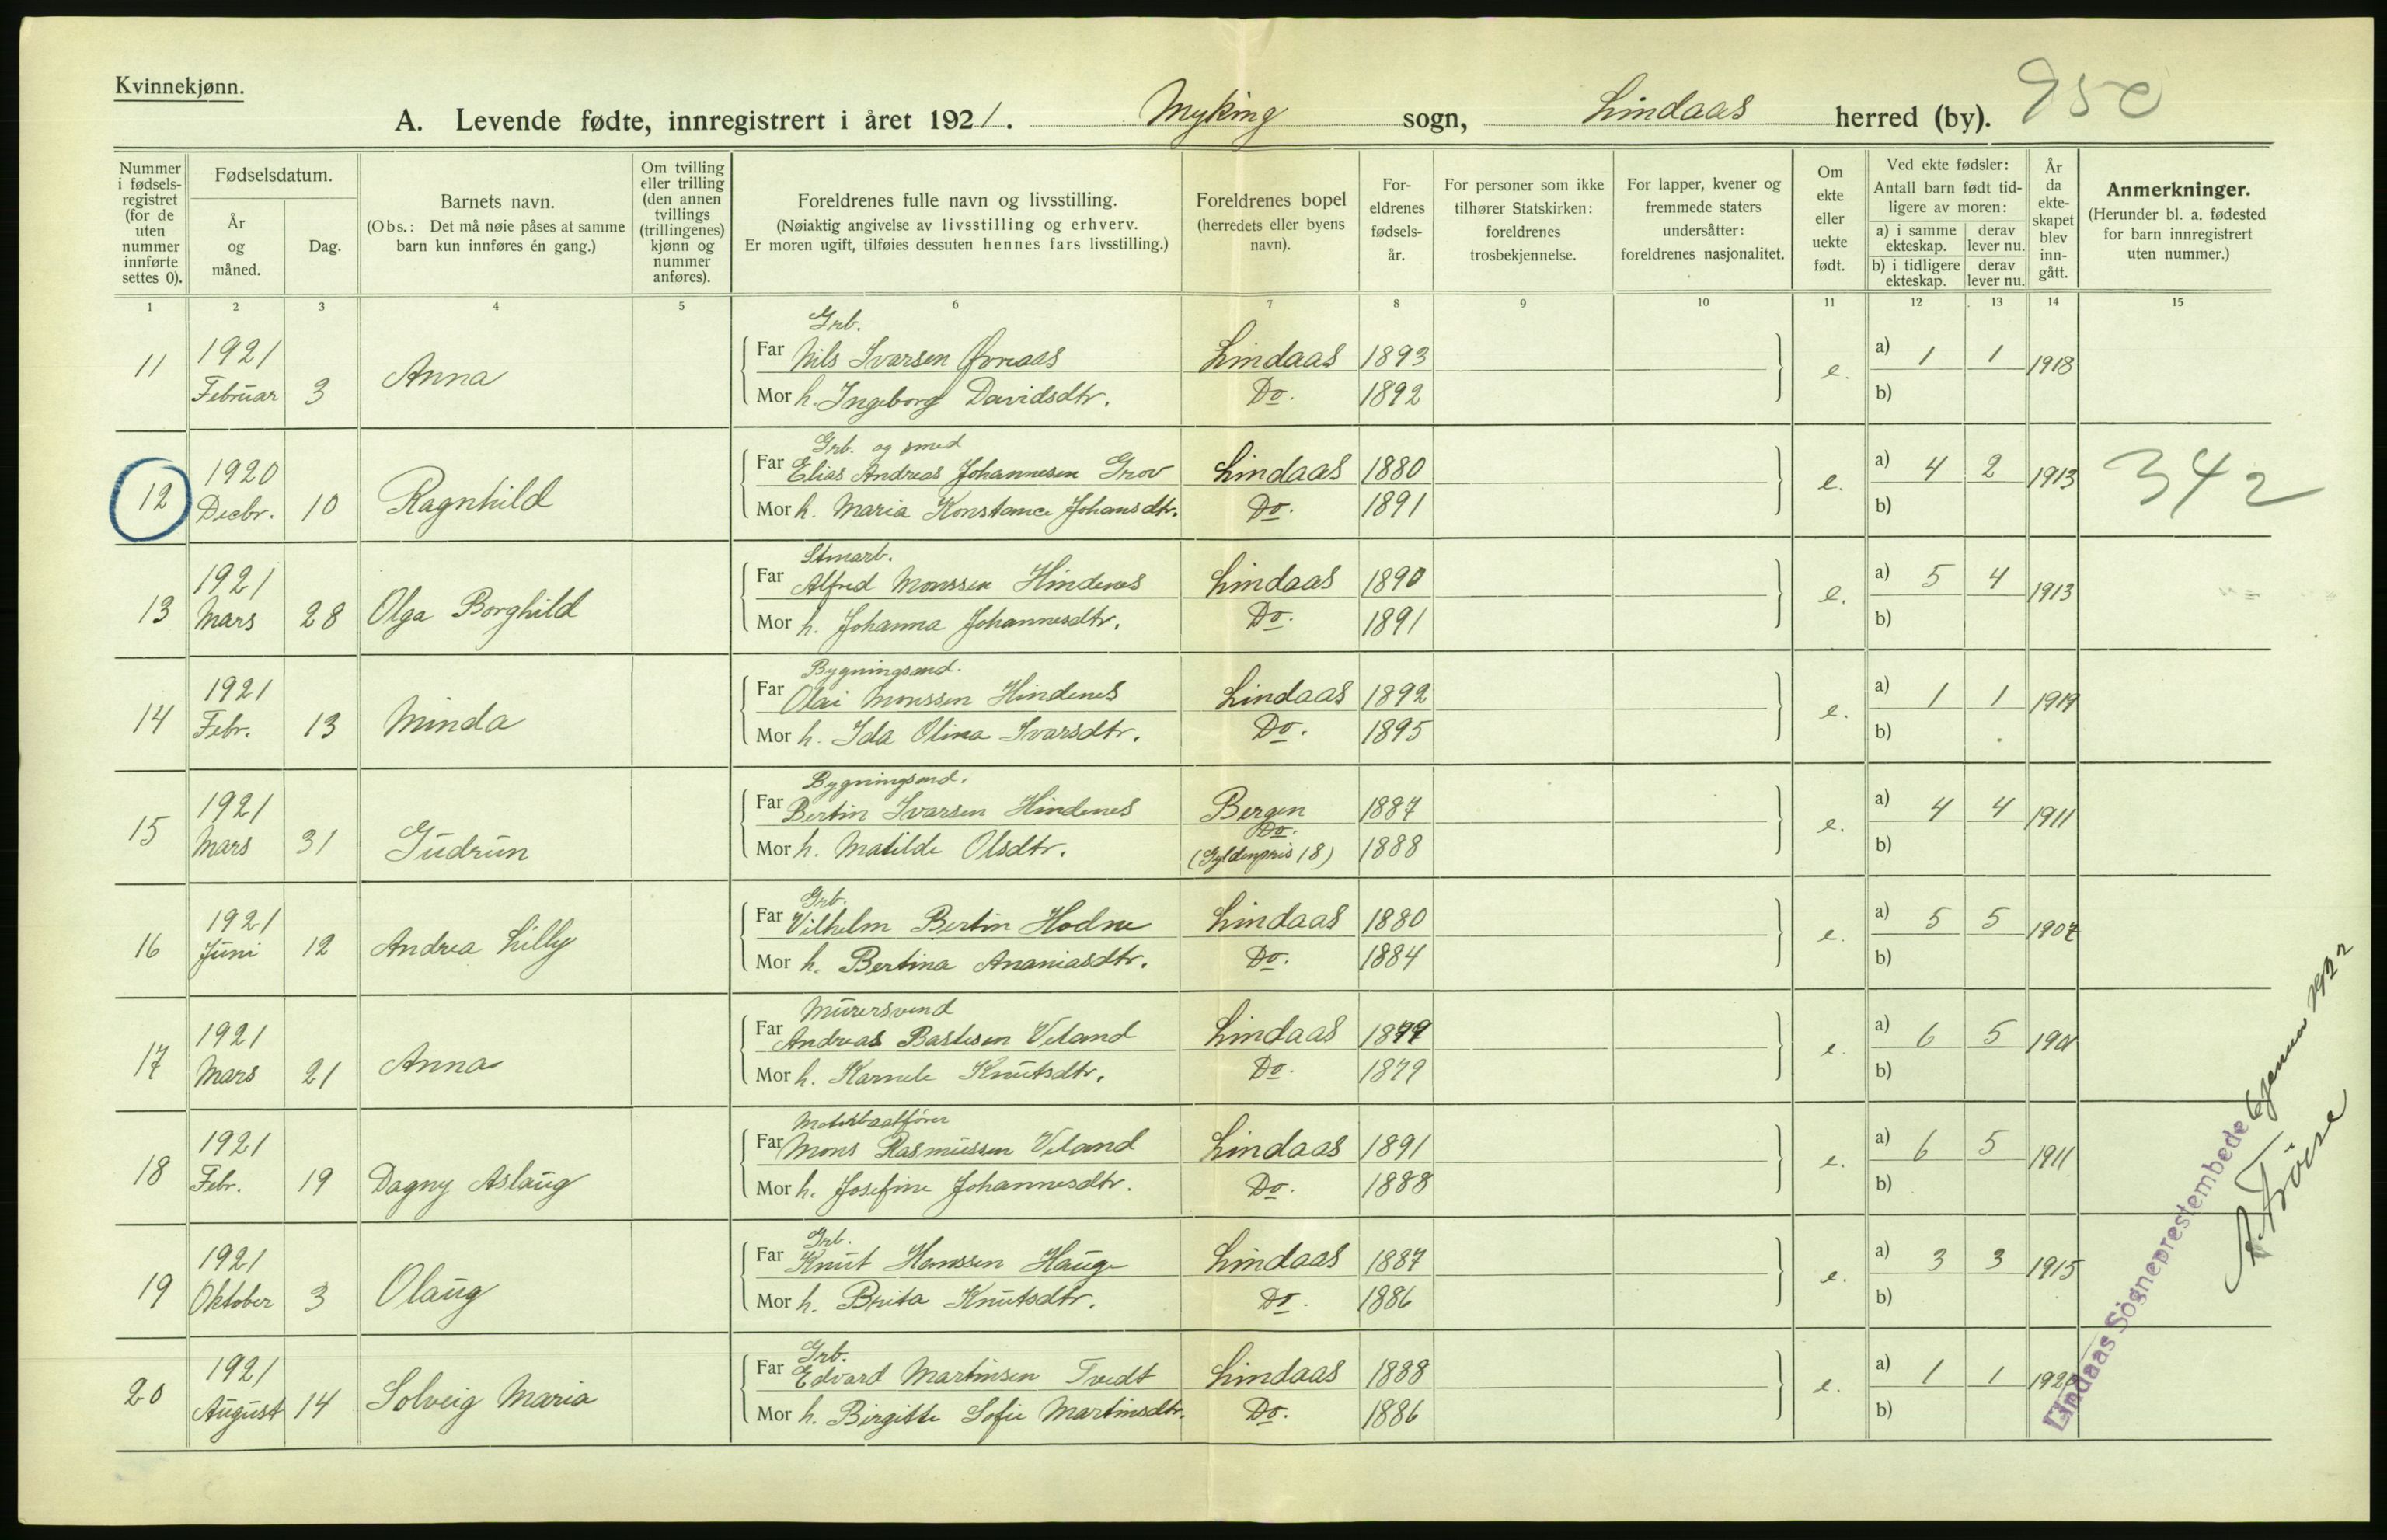 Kvinnekjønn.
A. Levende fødte, innregistrert i året 1921. Myking sogn, Lindaas herred (by). 950
Nummer i fødsels-registret (for de uten nummer innførte settes 0).
Fødselsdatum.
År og måned.
Dag.
Barnets navn.
(Obs.: Det må nøie påses at samme barn kun innføres én gang.)
Om tvilling eller trilling (den annen tvillings (trillingenes) kjønn og nummer anføres).
Foreldrenes fulle navn og livsstilling.
(Nøiaktig angivelse av livsstilling og erhverv.
Er moren ugift, tilføies dessuten hennes fars livsstilling.)
Foreldrenes bopel
(herredets eller byens navn).
For-eldrenes fødsels-år.
For personer som ikke tilhører Statskirken: foreldrenes trosbekjennelse.
For lapper, kvener og fremmede staters undersåtter: foreldrenes nasjonalitet.
Om ekte eller uekte født.
Ved ekte fødsler:
Antall barn født tid-ligere av moren:
a) i samme ekteskap. derav lever nu.
b) i tidligere ekteskap. derav lever nu.
År da ekte-skapet blev inn-gått.
Anmerkninger.
(Herunder bl. a. fødested for barn innregistrert uten nummer.)
1 2 3 4 5 6 7 8 9 10 11 12 13 14 15
Grb.
11 1921 Februar 3 Anna Far Nils Ivarsen Lindaas 1893 e. a) 1 1 1918
Mor h. Ingeborg Davidsdtr. Do. 1892 b)
Grb. og smed
12 1920 Decbr. 10 Ragnhild Far Elias Andreas Johannesen Grov Lindaas 1880 e. a) 4 2 1913 342
Mor h. Maria Konstance Johansdtr. Do. 1891 b)
Stmarb.
13 1921 Mars 28 Olga Borghild Far Alfred Monssen Hindenes Lindaas 1890 e. a) 5 4 1913
Mor h. Johanna Johannesdtr. Do. 1891 b)
Bygningssnd.
14 1921 Febr. 13 Minda Far Olai Monssen Hindenes Lindaas 1892 e. a) 1 1 1919
Mor h. Ida Olina Ivarsdtr. Do. 1895 b)
Bygningssnd.
15 1921 Mars 31 Gudrun Far Bertin Ivarsen Hindenes Bergen 1887 e. a) 4 4 1911
Mor h. Matilde Olsdtr. Do. (Gyldenpris 18) 1888 b)
Grb.
16 1921 Juni 12 Andrea Lilly Far Vilhelm Bertin Hodne Lindaas 1880 e. a) 5 5 1907
Mor h. Bertina Ananiasdtr. Do. 1884 b)
Murersvend
17 1921 Mars 21 Anna Far Andreas Bastesen Veland Lindaas e. a) 6 5 1901
Mor h. Karnele Knutsdtr. Do. 1879 b)
Motorbaatfører
18 1921 Febr. 19 Dagny Aslaug Far Mons Rasmussen Veland Lindaas 1891 e. a) 6 5 1911
Mor h. Josefine Johannesdtr. Do. 1888 b)
Grb.
19 1921 Oktober 3 Olaug Far Knut Hanssen Hauge Lindaas 1887 e. a) 3 3 1915
Mor h. Brita Knutsdtr. Do. 1886 b)
Grb.
20 1921 August 14 Solveig Maria Far Edvard Martinsen Tvedt Lindaas 1888 e. a) 1 1 1920
Mor h. Birgitte Sofie Martinsdtr. Do. 1886 b)
Lindaas Sognepresteembede 6 januar 1922